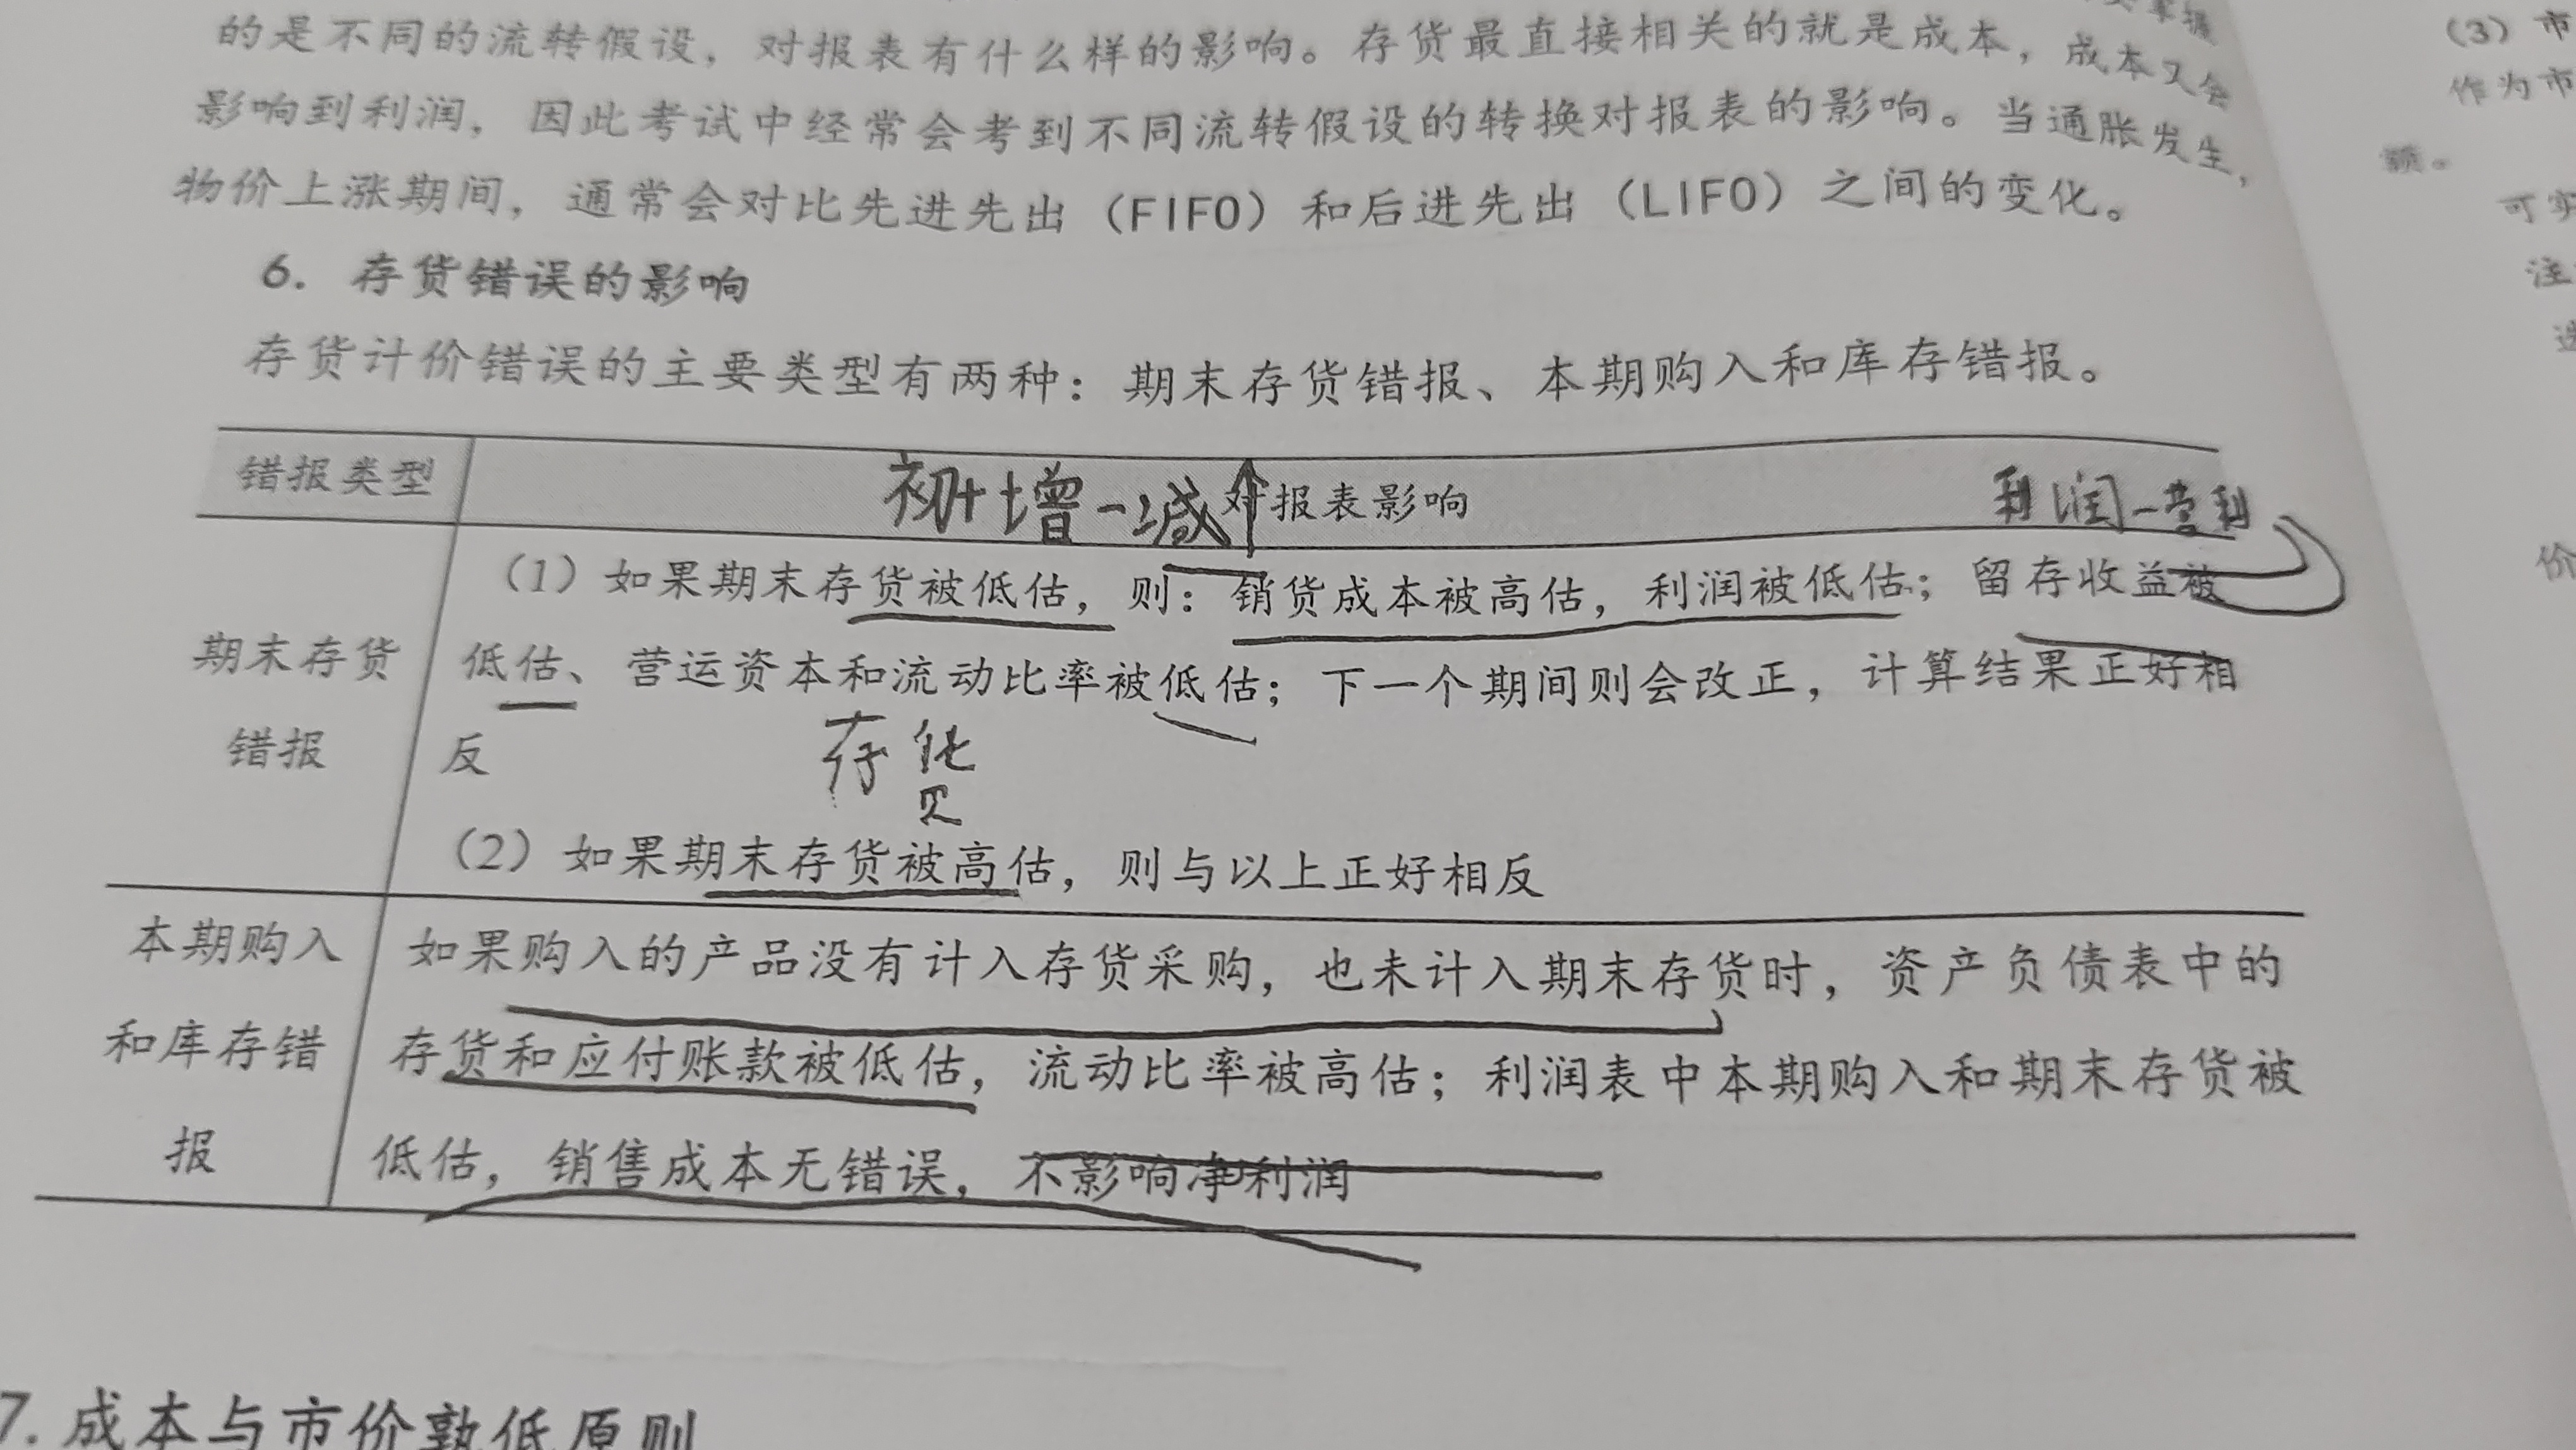 的是不同的流转假设，对报表有什么样的影响。存货最直接相关的就是成本，成本又会
影响到利润，因此考试中经常会考到不同流转假设的转换对报表的影响。当通胀发生，
物价上涨期间，通常会对比先进先出（FIFO）和后进先出（LIFO）之间的变化。
6. 存货错误的影响
存货计价错误的主要类型有两种：期末存货错报、本期购入和库存错报。
错报类型
初+增-减
对报表影响
利润-营利
期末存货
错报
（1）如果期末存货被低估，则：销货成本被高估，利润被低估；留存收益被
低估、营运资本和流动比率被低估；下一个期间则会改正，计算结果正好相
反
存货
（2）如果期末存货被高估，则与以上正好相反
本期购入
和库存错
报
如果购入的产品没有计入存货采购，也未计入期末存货时，资产负债表中的
存货和应付账款被低估，流动比率被高估；利润表中本期购入和期末存货被
低估，销售成本无错误，不影响净利润
7. 成本与市价孰低原则
（3）市
作为市
额。
可实
注
价